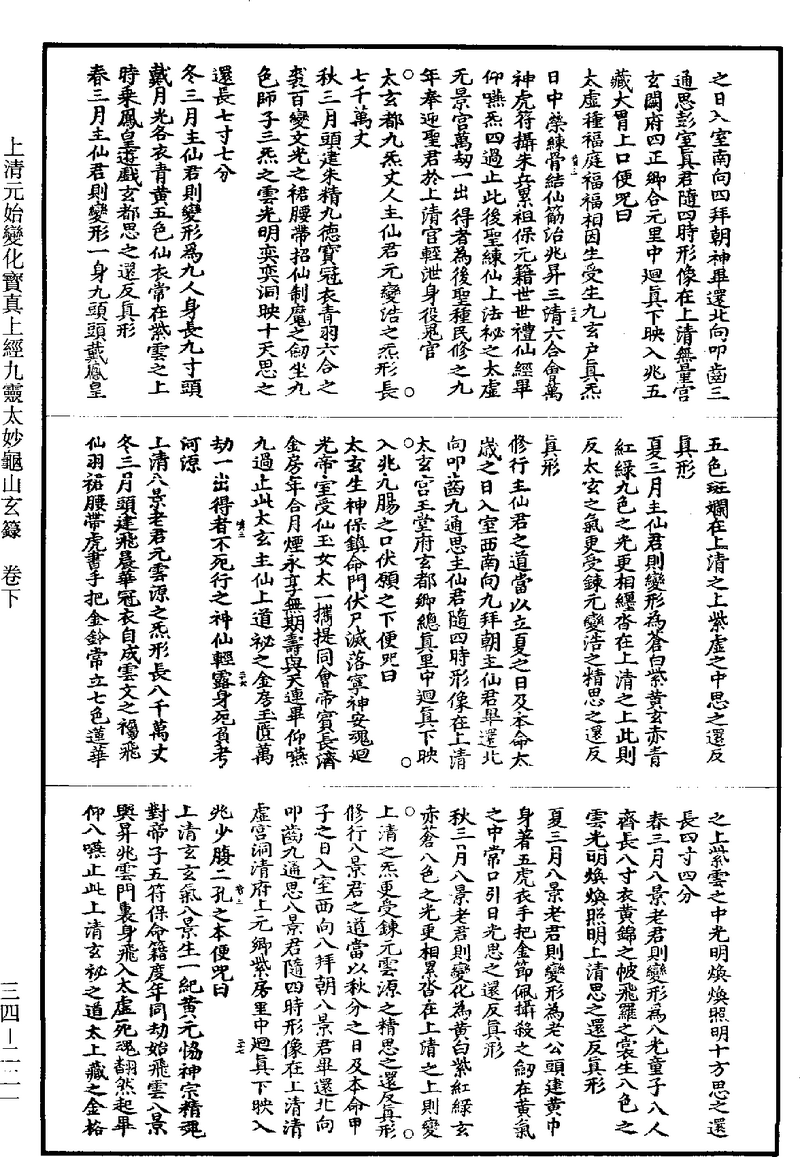 之日入室南向四拜朝神畢還北向叩齒三
通思彭室真君隨四時形像在上清無量宮
玄闕府四正鄉合元里中迴真下映入兆五
藏大胃上口便咒曰
太虛種福庭福福相因生受生九玄户真炁
日中榮練骨結仙筋治兆昇三清六合會萬
神虎符攝朱兵累祖保元籍世世禮仙經畢
仰嚥炁四過止此後聖練仙上法祕之太虛
无景宮萬劫一出得者為後聖種民修之九
年奉迎聖君於上清宮輕泄身役鬼官
太玄都九炁丈人主仙君元變浩之炁形長
七千萬丈
秋三月頭建朱精九德寶冠衣青羽六合之
裘百變文光之裙腰帶招仙制魔之劒坐九
色師子三炁之雲光明奕奕洞映十天思之
還長七寸七分
冬三月主仙君則變形爲九人身長九寸頭
戴月光各衣青黃五色仙衣常在紫雲之上
時乘鳳皇遊戲玄都思之還反真形
春三月主仙君則變形一身九頭頭戴鳳皇
五色斑斕在上清之上紫虛之中思之還反
真形
夏三月主仙君則變形為蒼白紫黃玄赤青
紅綠九色之光更相纏沓在上清之上此則
反太玄之氣更受鍊元變浩之精思之還反
真形
修行主仙君之道當以立夏之日及本命太
歲之日入室西南向九拜朝主仙君畢還北
向叩齒九通思主仙君隨四時形像在上清
太玄宮玉堂府玄都鄉總真里中迴真下映
入兆九腸之口伏願之下便咒曰
太玄生神保鎮命門伏尸滅落寧神安魂迴
光帝室受仙玉女太一攜提同會帝賓長濟
金房年合月煙永享無期壽與天連畢仰嚥
九過止此太玄主仙上道祕之金房玉匱萬
劫一出得者不死行之神仙輕露身死負考
河源
上清八景老君元雲源之炁形長八千萬丈
冬三月頭建飛晨華冠衣自成雲文之褐飛
仙羽裙腰帶虎書手把金鈴常立七色蓮華
之上紫雲之中光明煥煥照明十方思之還
長四寸四分
春三月八景老君則變形爲八光童子八人
齊長八寸衣黃錦之帔飛羅之裳生八色之
雲光明煥煥照明上清思之還反真形
夏三月八景老君則變形為老公頭建黃巾
身著五虎衣手把金節佩攝殺之劒在黃氣
之中常口引日光思之還反真形
秋三月八景老君則變化為黃白紫紅綠玄
赤蒼八色之光更相累沓在上清之上則變
上清之炁更受鍊元雲源之精思之還反真形
修行八景君之道當以秋分之日及本命甲
子之日入室西向八拜朝八景君畢還北向
叩齒九通思八景君隨四時形像在上清清
虛宮洞清府上元鄉紫房里中迴真下映入
兆少腹二孔之本便咒曰
上清玄玄氣八景生一紀黃元恊神宗精魂
對帝子五符保命籍度年同劫始飛雲八景
輿昇兆雲門裏身飛入太虛死魂翻然起畢
仰八嚥止此上清玄祕之道太上藏之金格
上清元始變化寶真上經九靈太妙龜山玄籙 卷下
三四－二二一